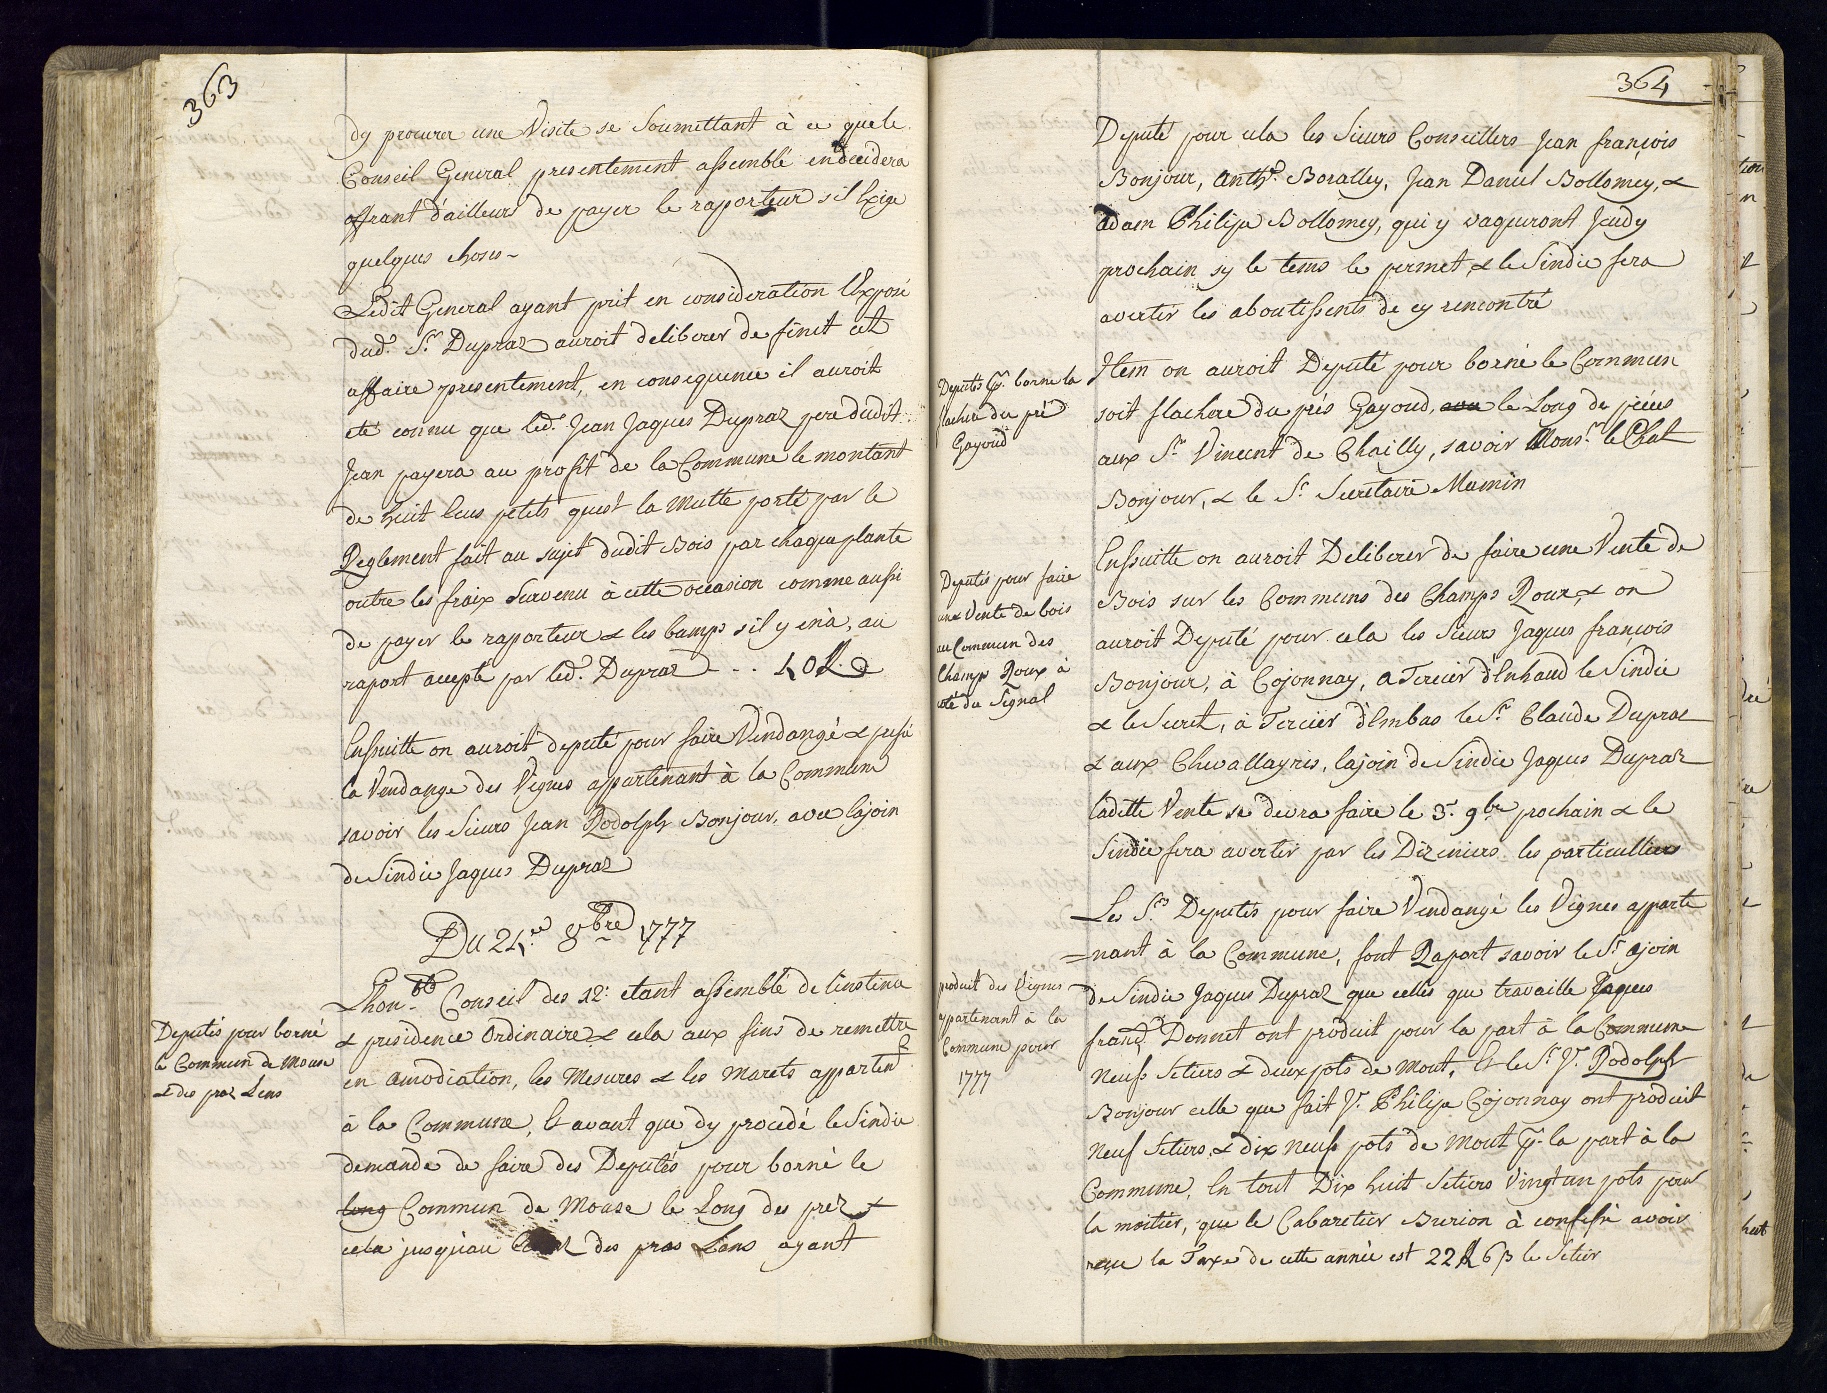 363
dy procurer une Visite se Soumettant à ce que le
Conseil General presentement assemblé endecidera
offrant d'ailleurs de payer le raporteur sil Exige
quelques choses
Ledit General ayant prit en consideration l'Exposé
dud.t S.r Dupraz auroit deliberer de finit cet
affaire presentement, en consequence il auroit
eté connu que led.t Jean Jaques Dupraz pere dudit
Jean payera au profit de la Commune le montant
de huit Ecus petits quest la Multe porté par le
Reglement fait au sujet dudit Bois par chaque plante
outre les fraix Survenu à cette occasion comme aussi
de payer le raporteur & les bamps s'il y en à, au
raport accepté par led.t Dupraz
Ensuitte on auroit deputé pour faire Vendangé & pesé
la Vendange des Vignes appartenant à la Commune
savoir les Sieurs Jean Rodolph Bonjour, avec lajoin
de Sindic Jaques Dupraz
Du 8bre 1777
Deputés pour borné
le Commun de Mouse
& des praz Lens
Lhon.ble Conseil des 12: etant assemblé de linstence
& presidence Ordinaire & cela aux fins de remettre
en amodiation, les Mesures & les Marets apparten.t
à la Commune, Et avant que dy procedé le Sindic
demande de faire des Deputés pour borné le
long Commun de Mouse le Long des prez &
cela jusqu'au des pras Lens ayant
364
Deputé pour cela les Sieurs Conseillers Jean françois
Bonjour, Anth.e Boralley, Jean Daniel Bollomey, &
adam Philipe Bollomey, qui y vaqueront Jeudy
prochain sy le tems le permet & le Sindic fera
avertir les aboutissents de cy rencontré
Deputés p.r borné la
flachere du pré
Gayoud
Item on auroit Deputé pour borné le Commun
soit flachere du prés Gayoud, le Long de pieces
aux S.r Vincent de Chailly, savoir Mons.r le Chat
Bonjour, & le S.r Secretaire Mamin
Deputés pour faire
une Vente de bois
au Commun des
Champs Roux à
coté du Signal
Ensuitte on auroit Deliberer de faire une Vente de
Bois sur les Communs des Champs Roux, & on
auroit Deputé pour cela les Sieurs Jaques françois
Bonjour, à Cojonnay, a Tercier d'Enhaud le Sindic
& le Secret, à Tercier d'Embas le S.r Claude Dupraz
& aux Chevallayres, lajoin de Sindic Jaques Dupraz
ladette Vente se devra faire le 3.e 9bre prochain & le
Sindic fera avertir par les Dizeniers les particulliers
produit des Vignes
appartenant à la
Commune pour
1777
Les S.rs Deputés pour faire Vendangé les Vignes apparte
=nant à la Commune, font Raport savoir le S.r ajoin
de Sindic Jaques Dupraz que celles que travaille Jaques
franç.s Donnet ont produit pour la part à la Commune
Neufs Setiers & deux pots de Mout, Et le S.r J.n Rodolph
Bonjour celle que fait J.n Philipe Cojonnay ont produit
Neuf Setiers & dix neufs pots de Mout p.r la part à la
Commune, En tout Dix huit Setiers Vingt un pots pour
la moitier, que le Cabaretier Burion à confessé avoir
reçue la Taxe de cette année est 22 ß le Setier